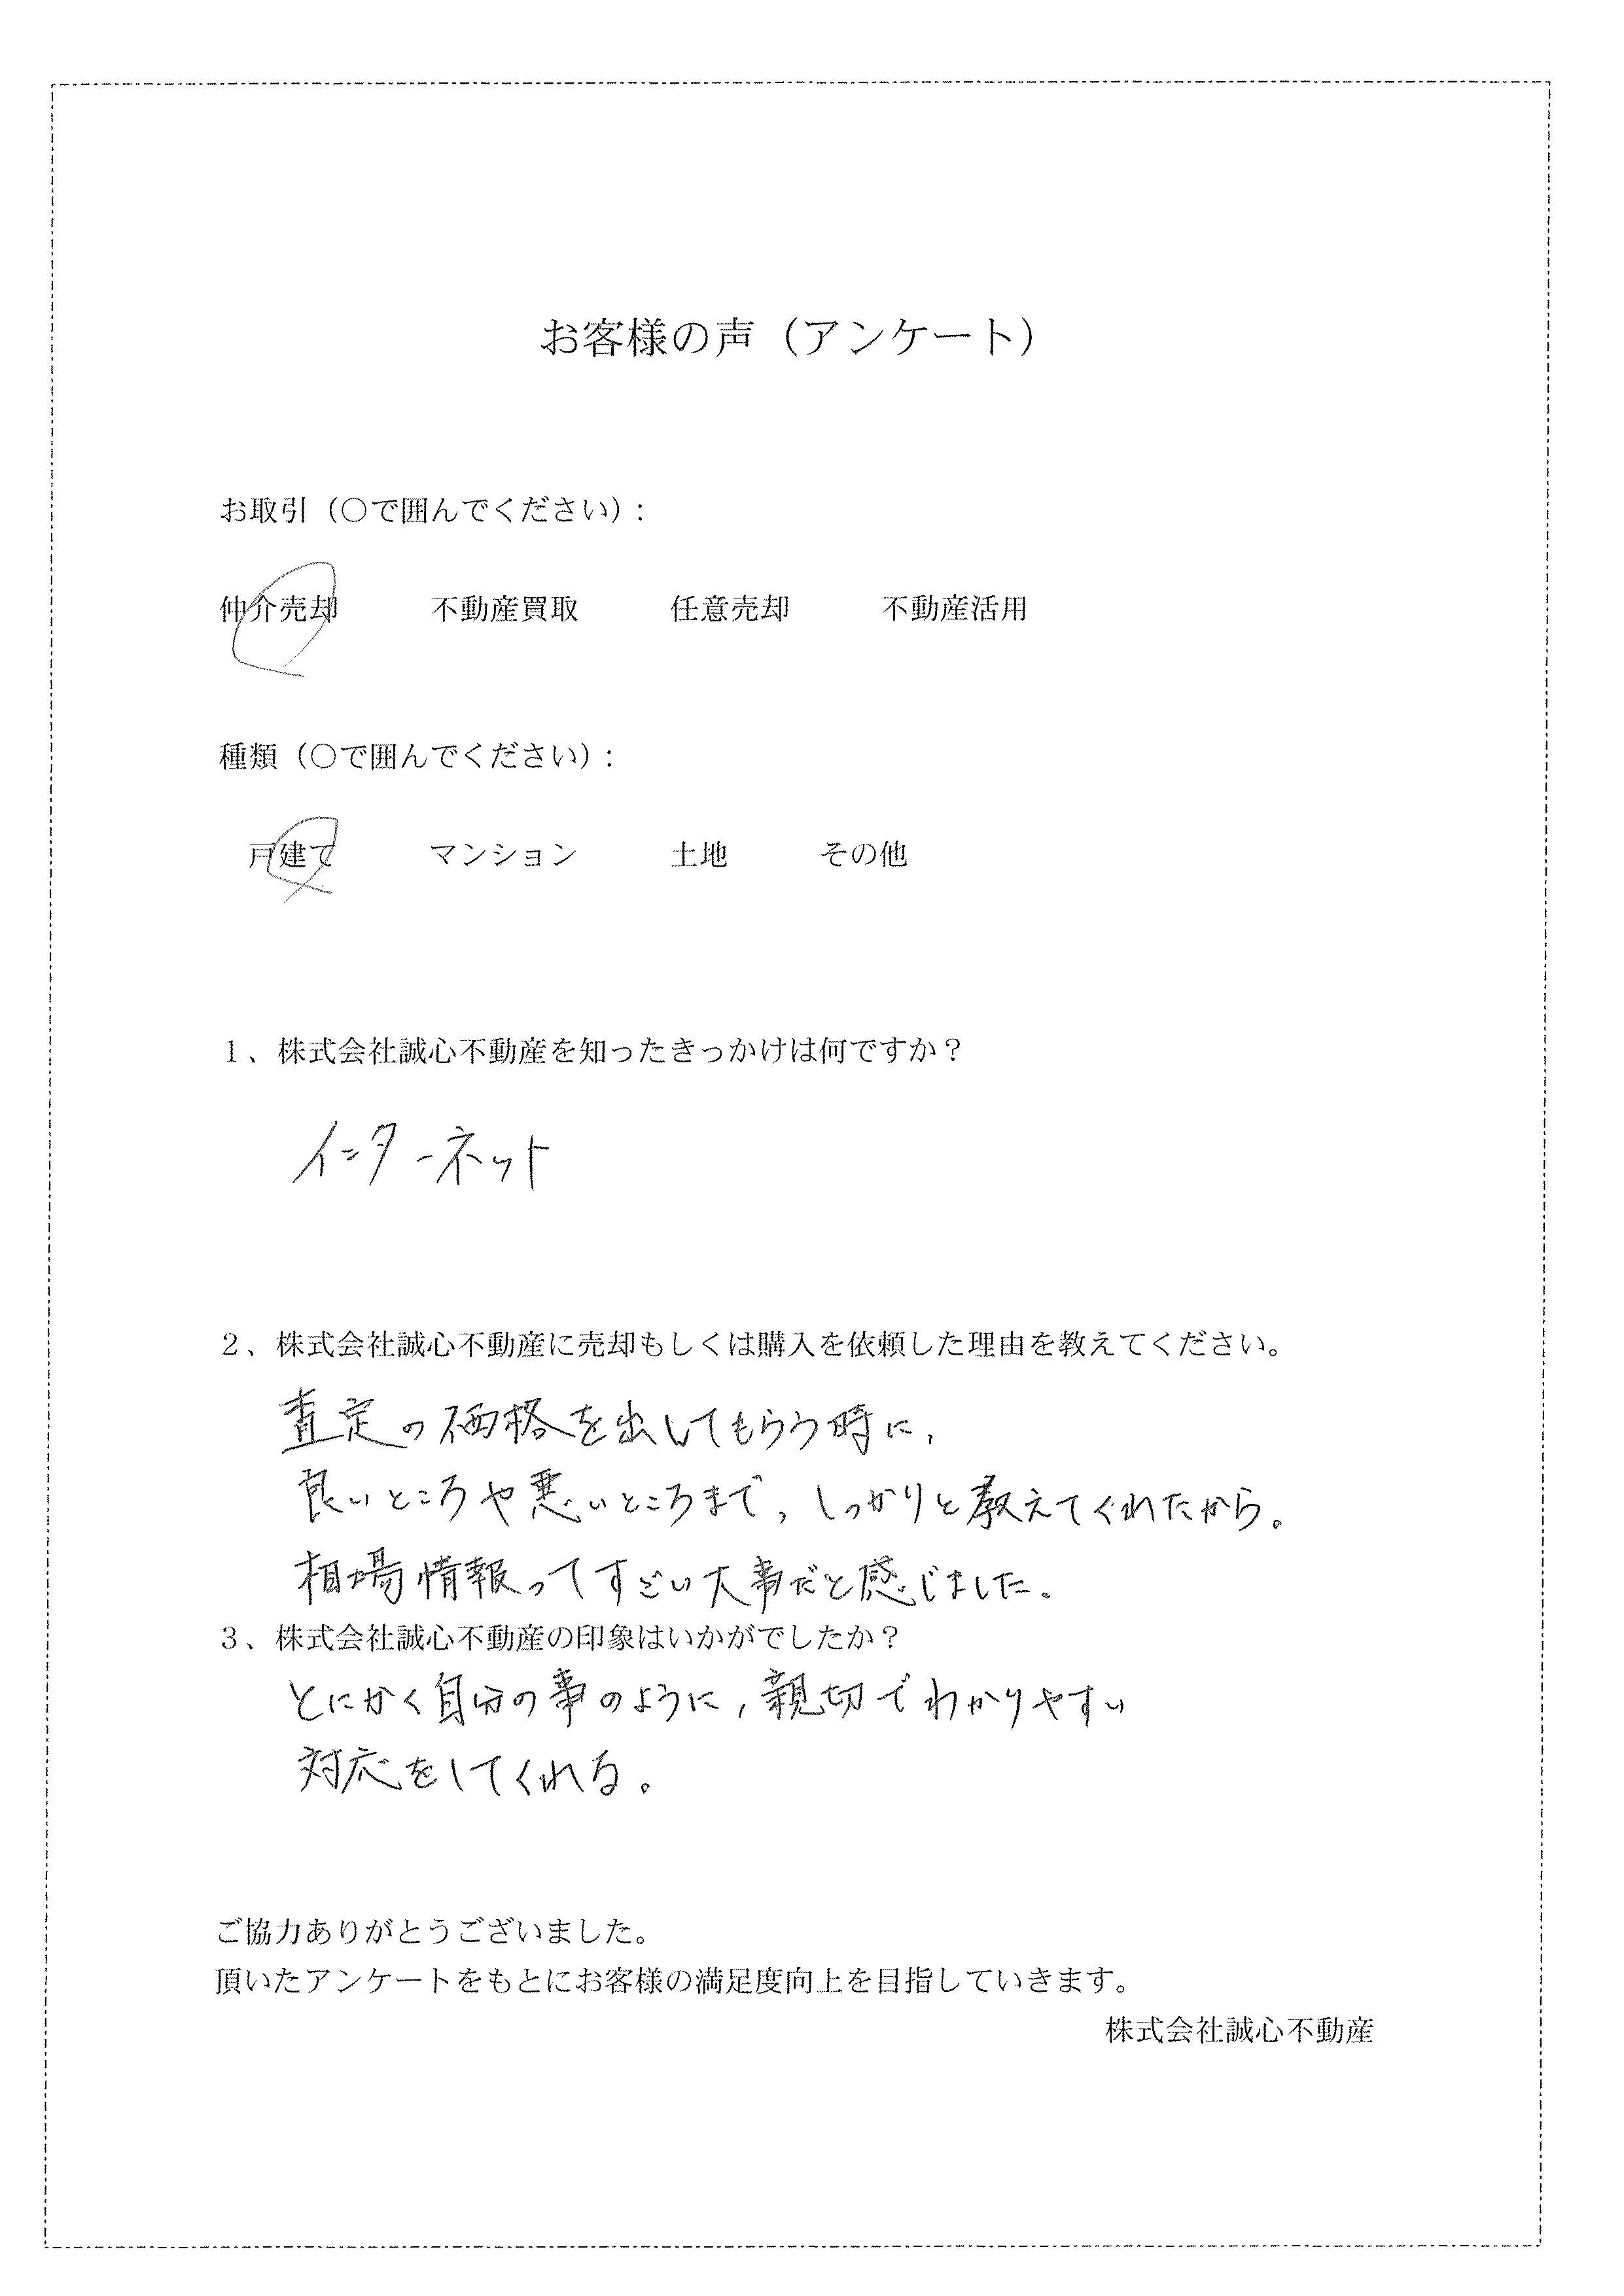 お客様の声（アンケート）
お取引（○で囲んでください）：
仲介売却　不動産買取　任意売却　不動産活用
種類（○で囲んでください）：
戸建て　マンション　土地　その他
１、株式会社誠心不動産を知ったきっかけは何ですか？
インターネット
２、株式会社誠心不動産に売却もしくは購入を依頼した理由を教えてください。
査定の価格を出してもらう時に、
良いところや悪いところまで、しっかりと教えてくれたから。
相場情報ってすごい大事だと感じました。
３、株式会社誠心不動産の印象はいかがでしたか？
とにかく自分の事のように、親切でわかりやすい
対応をしてくれる。
ご協力ありがとうございました。
頂いたアンケートをもとにお客様の満足度向上を目指していきます。
株式会社誠心不動産